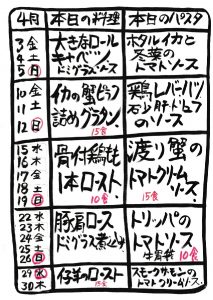 4月 本日の料理 本日のパスタ
3 金
4 土
5 日
大きなロール
キャベツ
ドミグラスソース
ホタルイカと
冬菜の
トマトソース
10 金
11 土
12 日
イカの蟹とうふ
詰めグラタン
15食
鶏レバーハツ
砂肝トマト
のソース
15 水
16 木
17 金
18 土
19 日
骨付鶏もも
1本ロースト
10食
渡り蟹の
トマトクリーム
ソース
15食
22 水
23 木
24 金
25 土
26 日
豚肩ロース
ドミグラス煮込み
トリッパの
トマトソース
牛胃袋 10食
29 水
30 木
仔羊のロースト
15食
スモークサーモンの
トマトクリームソース